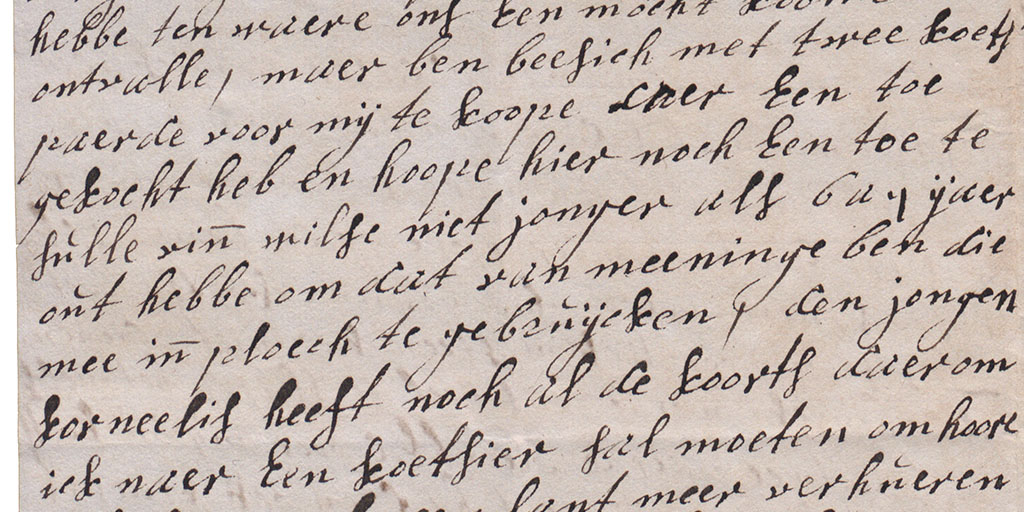 hebbe ten waere ons Een mocht
ontvalle, maer ben beesich met twee koets
paerde voor mij te koope daer Een toe
gekocht heb en hoope hier noch Een toe te
sulle vinn wilse niet jonger als 6 a 7 ijaer
out hebbe om dat van meeninge ben die
mee inn ploech te gebruijcken, den jongen
korneelis heeft noch al de koorts daerom
ick naer Een koetsier sal moeten om hoore
lant meer verhueren